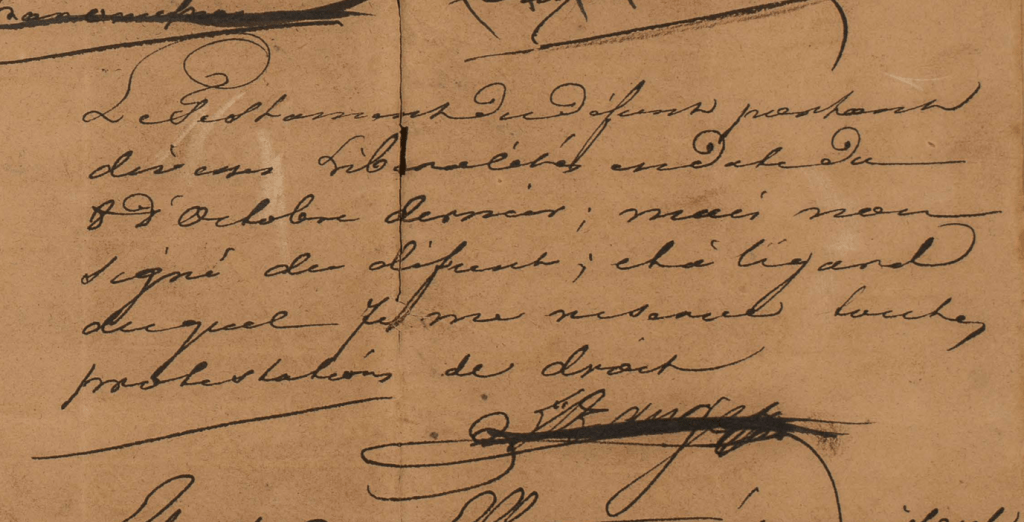 Le Testament du défunt portant
diverses Libéralités en date du
8 d'Octobre dernier; mais non
signé du défunt; et à l'égard
duquel Je me réserve toutes
protestations de droit